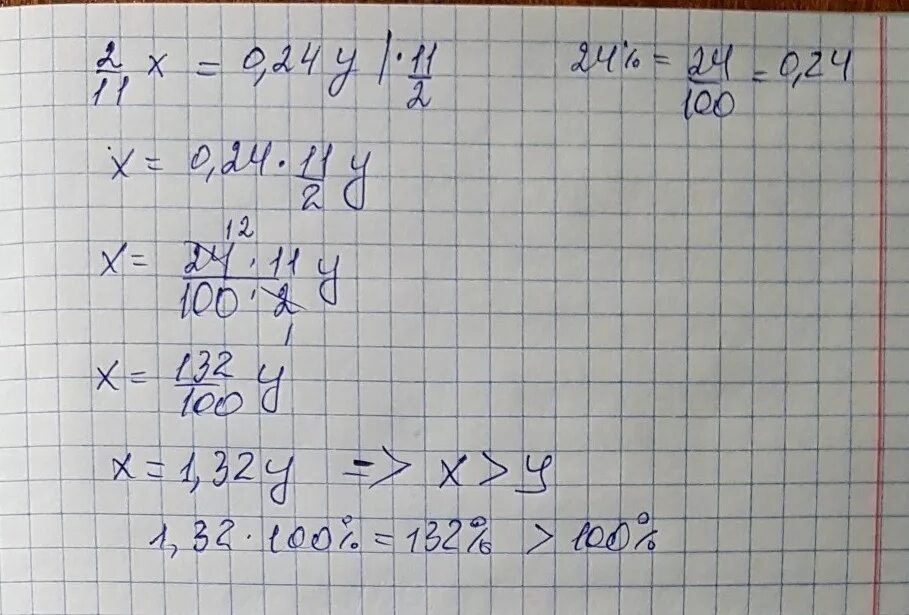 2/11 x = 0,24 y | · 11/2
24% = 24/100 = 0,24
x = 0,24 · 11/2 y
12
x = 24 · 11 / 100 · 2 y
1
x = 132/100 y
x = 1,32 y => x > y
1,32 · 100% = 132% > 100%